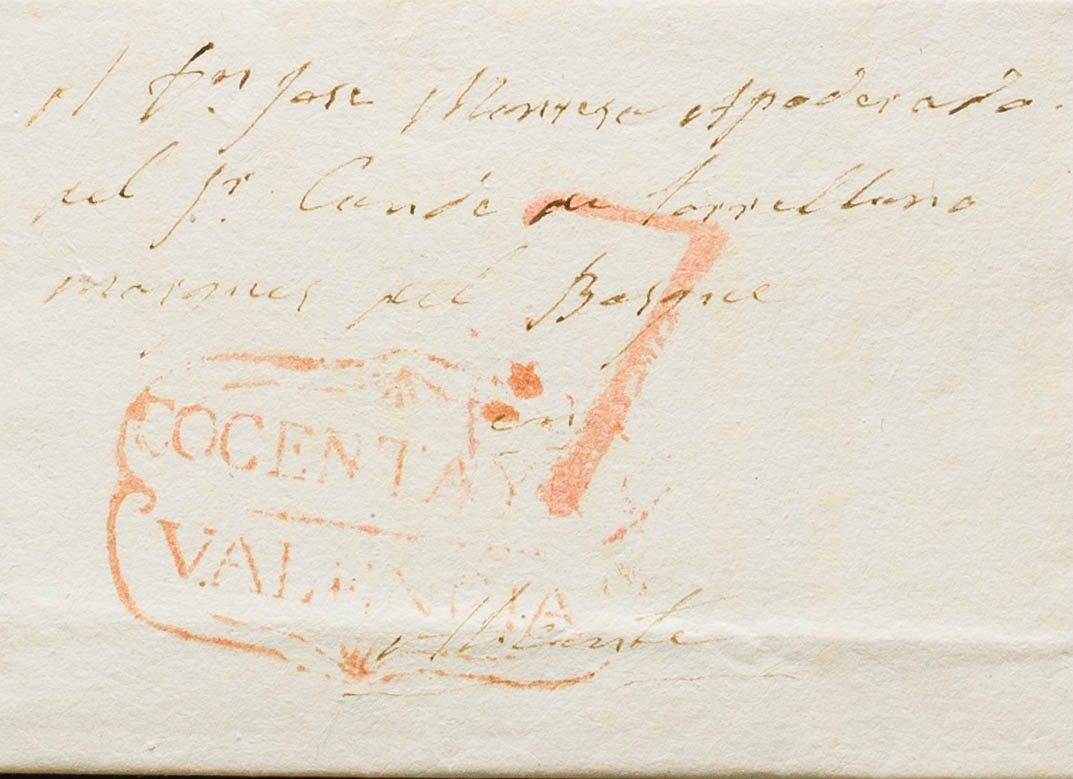 A Dn Jose Montesa Apoderado
del Sr. Conde de Torrellano
marques del Bosque
7
COCENTAY
en
VALENCIA
Alicante